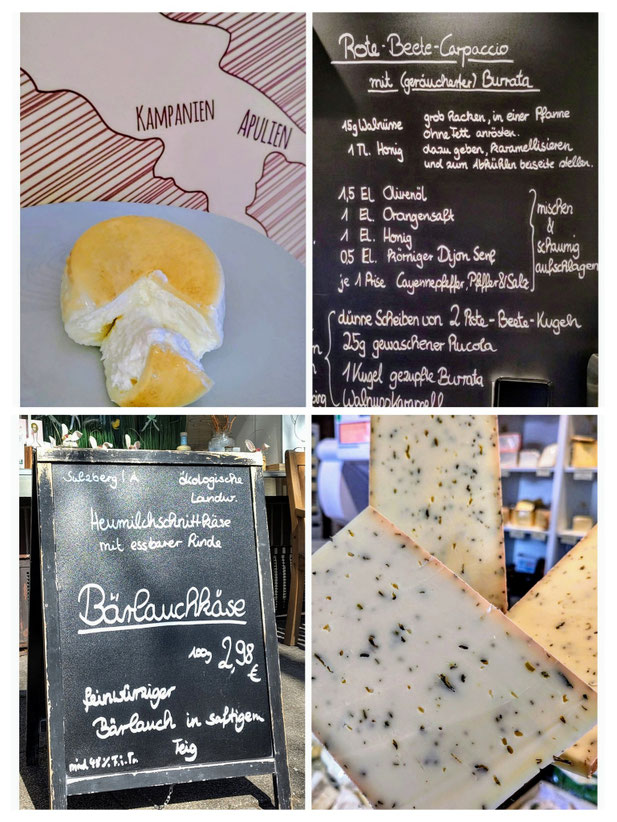 KAMPANIEN
APULIEN
Rote-Beete-Carpaccio
mit (geräucherter) Burrata
15g Walnüsse
grob hacken, in einer Pfanne
ohne Fett anrösten.
1 TL Honig
dazu geben, karamellisieren
und zum Abkühlen beiseite stellen.
1,5 EL Olivenöl
1 EL Orangensaft
1 EL. Honig
0,5 EL. Körniger Dijon Senf
je 1 Prise Cayennepfeffer, Pfeffer & Salz
mischen
&
schaumig
aufschlagen
dünne Scheiben von 2 Rote-Beete-Kugeln
25g gewaschener Rucola
1 Kugel gezupfte Burrata
Walnusskaramell
Sulzberg | A
ökologische
Landw.
Heumilchschnittkäse
mit essbarer Rinde
Bärlauchkäse
100g 2,98
€
feinwürziger
Bärlauch in saftigem
Teig
mind. 48% F.i.Tr.